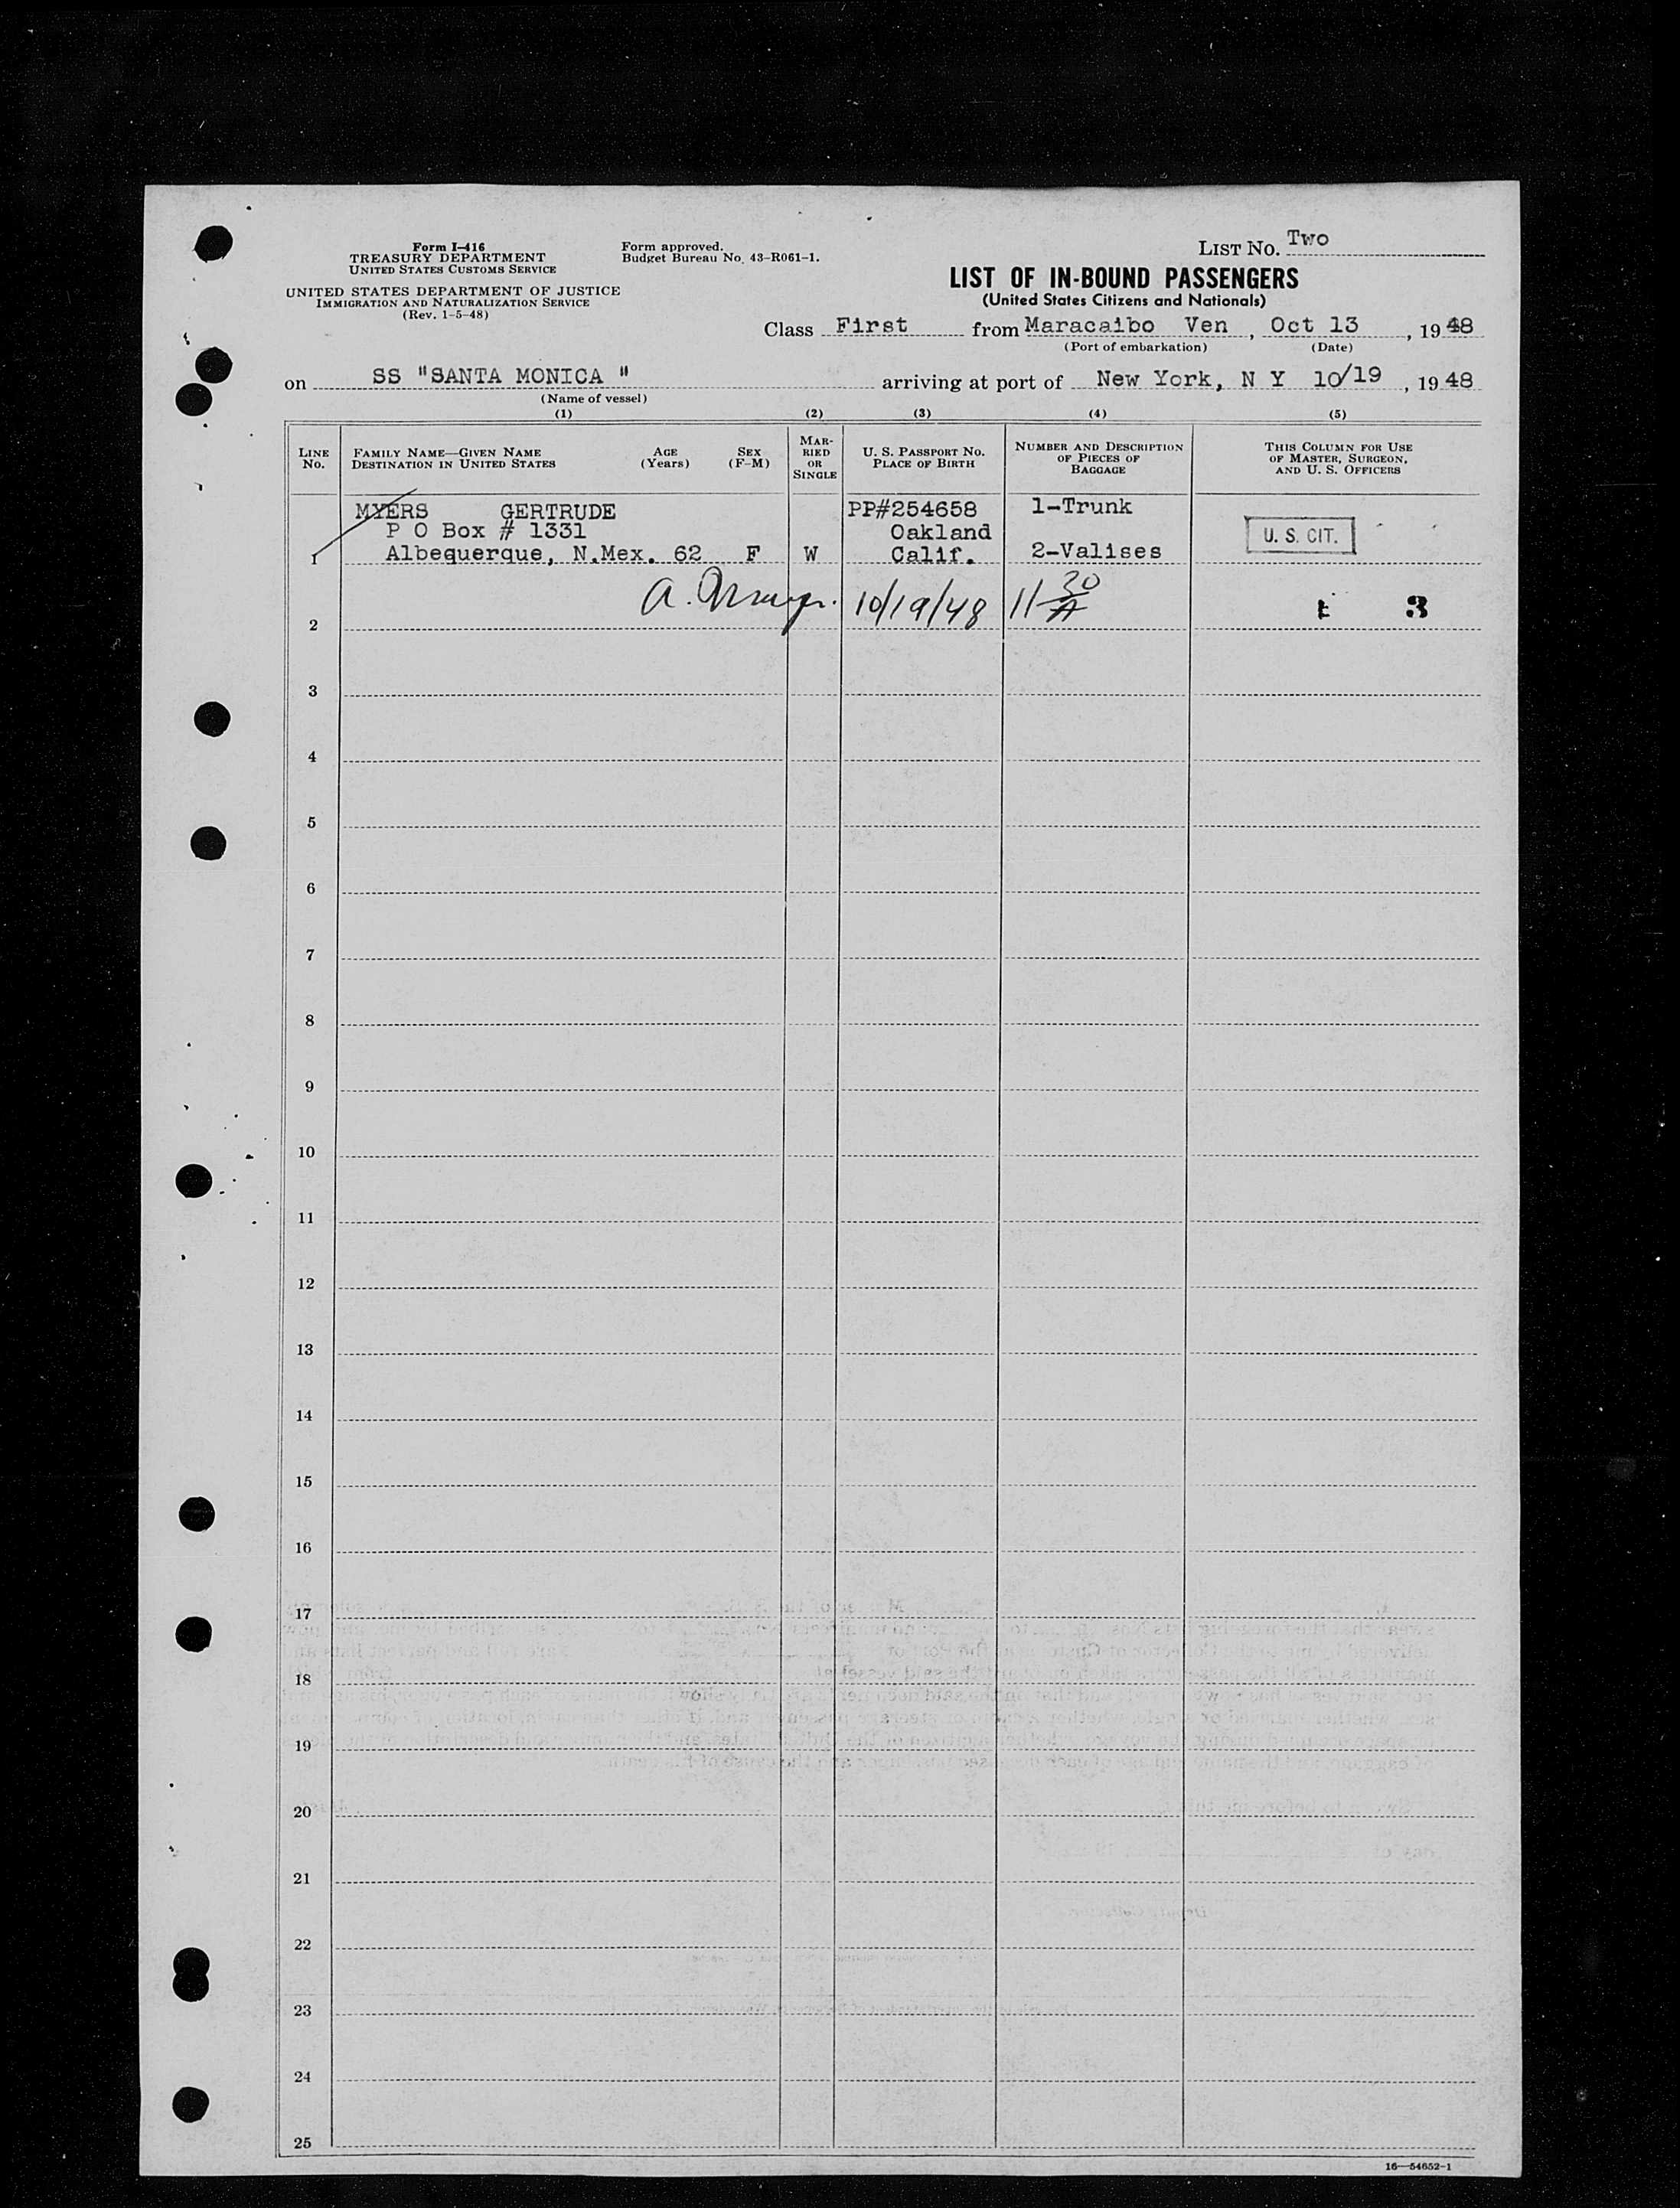 Form I-416
TREASURY DEPARTMENT
UNITED STATES CUSTOMS SERVICE
UNITED STATES DEPARTMENT OF JUSTICE
IMMIGRATION AND NATURALIZATION SERVICE
(Rev. 1-5-48)
Form approved.
Budget Bureau No. 43-R061-1.
LIST NO. Two
LIST OF IN-BOUND PASSENGERS
(United States Citizens and Nationals)
Class First from Maracaibo Ven, Oct 13, 1948
(Port of embarkation) (Date)
on SS "SANTA MONICA " arriving at port of New York, N Y 10/19, 1948
(Name of vessel)
(1) (2) (3) (4) (5)
LINE No.
FAMILY NAME—GIVEN NAME
DESTINATION IN UNITED STATES
AGE (Years)
SEX (F-M)
MAR-
RIED
OR
SINGLE
U. S. PASSPORT NO.
PLACE OF BIRTH
NUMBER AND DESCRIPTION
OF PIECES OF
BAGGAGE
THIS COLUMN FOR USE
OF MASTER, SURGEON,
AND U. S. OFFICERS
MYERS GERTRUDE PP#254658 1-Trunk
P O Box # 1331 Oakland U. S. CIT.
1 Albequerque, N.Mex. 62 F W Calif. 2-Valises
10/19/48 11 30/A 3
2
3
4
5
6
7
8
9
10
11
12
13
14
15
16
17
18
19
20
21
22
23
24
25
16—54652-1